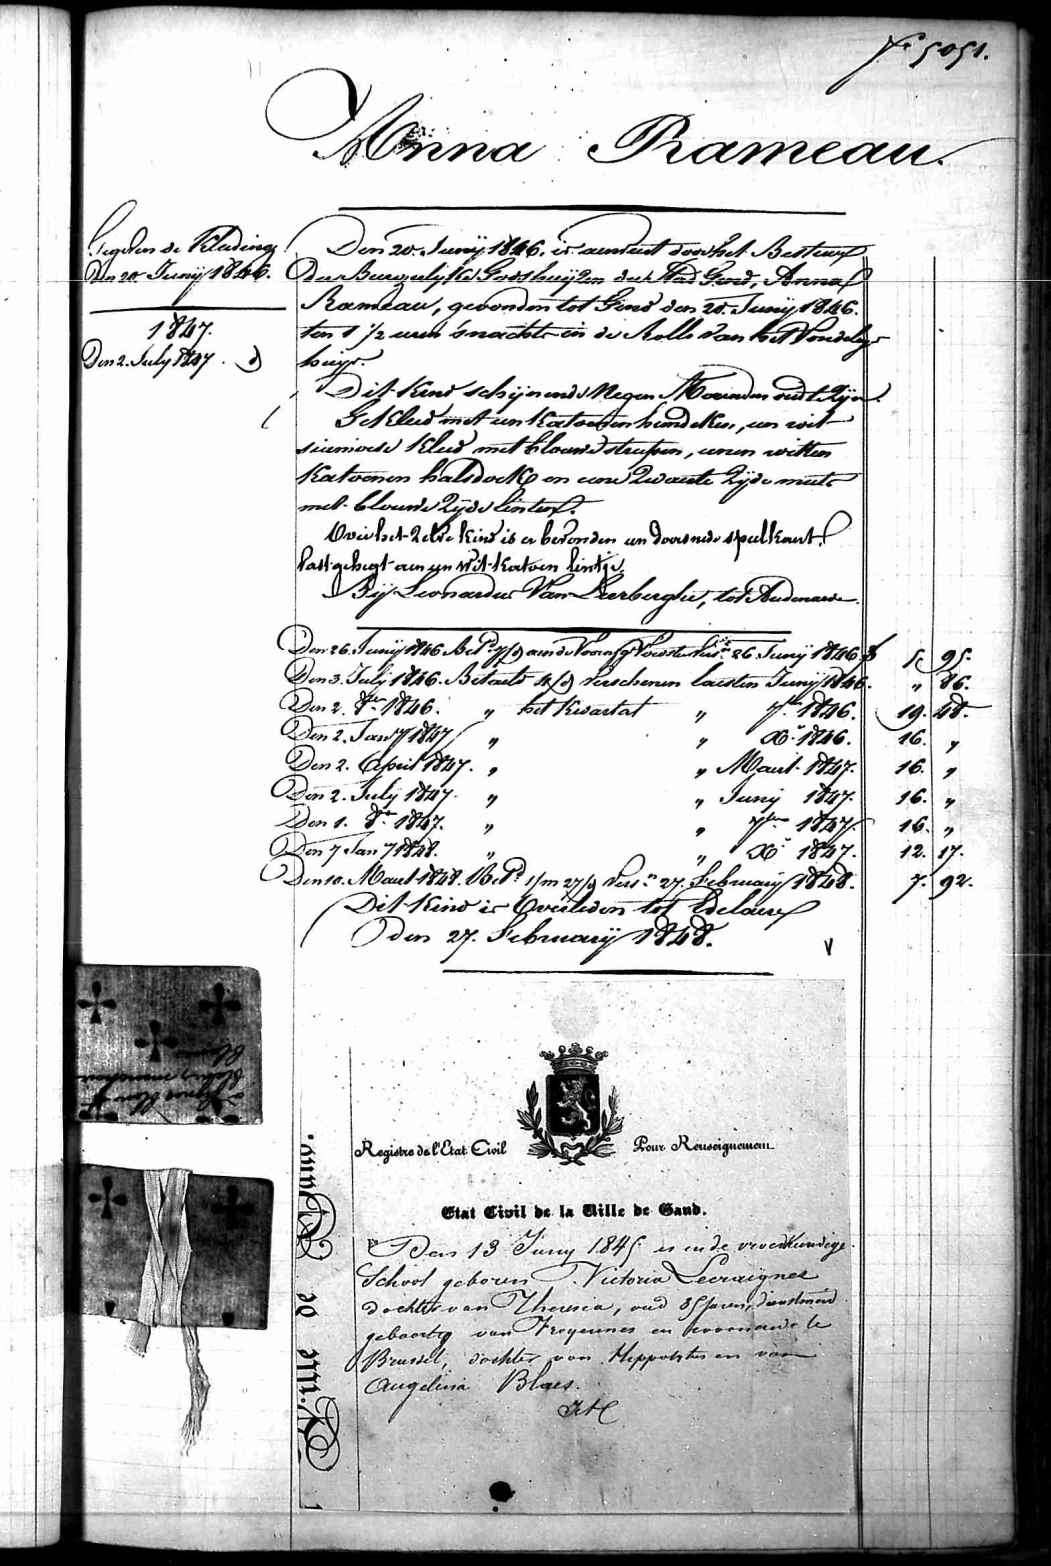 N.° 5051.
Anna Rameau.
Gegeven de Kleeding
Den 20. Junij 1846.
1847.
Den 2. July 1847.
Den 20. Junij 1846. is aenveert door het Bestuur
Der Burgerlijke Godshuijzen der Stad Gend, Anna
Rameau, gevonden tot Gend den 20. Junij 1846.
ten 1 1/2 uren 'snachts in de Rolle van het Vondelings
huijs.
Dit kind schijnende Negen Maenden oud te zijn.
Gekleed met een katoenen hemdeken, een wit
siamoise kleed met blauwe streepen, eenen witten
katoenen halsdoek en eene zwarte zijde muts
met blauwe zijde linten.
Over het zelve kind is er bevonden een doorsnede speelkaart
vast gehegt aen een wit katoen lintje.
Bij Leonardus Van Leerberghe, tot Audenaerde.
Den 26. Junij 1846. Bet. aen de Voorsg. Voedster 26 Junij 1846. 5. 95.
Den 3. July 1846. Betaelt verschenen laesten Junij 1846. " 86.
Den 2. 8.er 1846. " het kwartal " 7.ber 1846. 19. 48.
Den 2. Jany 1847 " " X.r 1846. 16. "
Den 2. April 1847. " " Maert 1847. 16. "
Den 2. July 1847. " " Junij 1847. 16. "
Den 1. 8.er 1847. " " 7.ber 1847. 16. "
Den 7 Jany 1848. " " X.r 1847. 12. 17.
Den 10. Maert 1848. Bet. 1/m 27/d vers.n 27. February 1848. 7. 92.
Dit kind is Overleden tot Edelaere
Den 27. February 1848.
Registre de l'Etat Civil Pour Renseignement
Etat Civil de la Ville de Gand.
Den 13 Juny 1845 is in de vroedkundige
School geboren Victoria Lecraignez
dochter van Theresia, oud 35 jaren, dienstmeid
geboortig van Froyennes en woonende te
Brussel, dochter van Hippolite en van
Angelina Blaes.